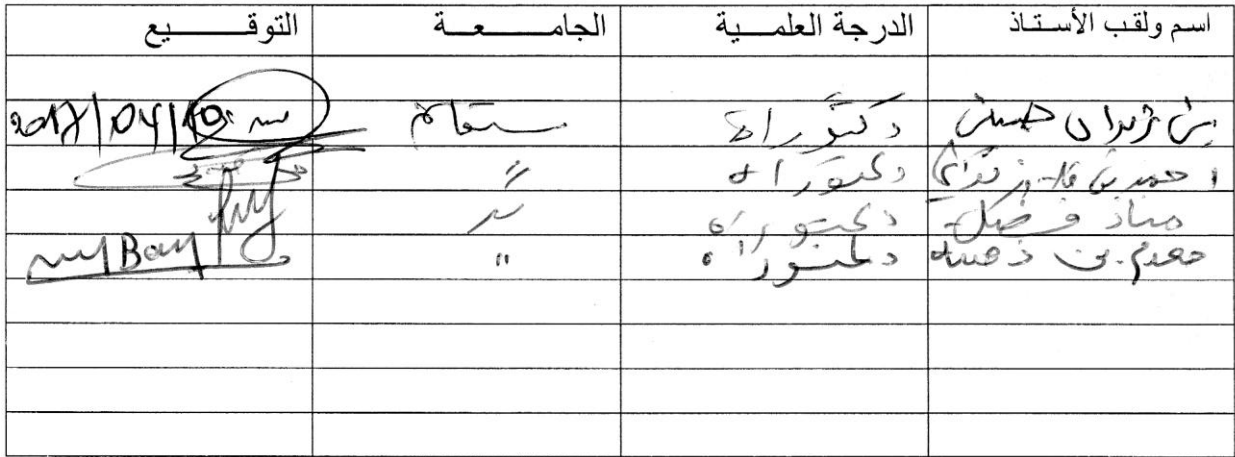 اسم ولقب الأستاذ الدرجة العلمية الجامعة التوقيع
بن زيدان حسين دكتوراة مستغانم 2017/04/10
احمد بن دكتوراه "
فضيل دكتوراه "
مقدم بن ذهيبة دكتوراه "